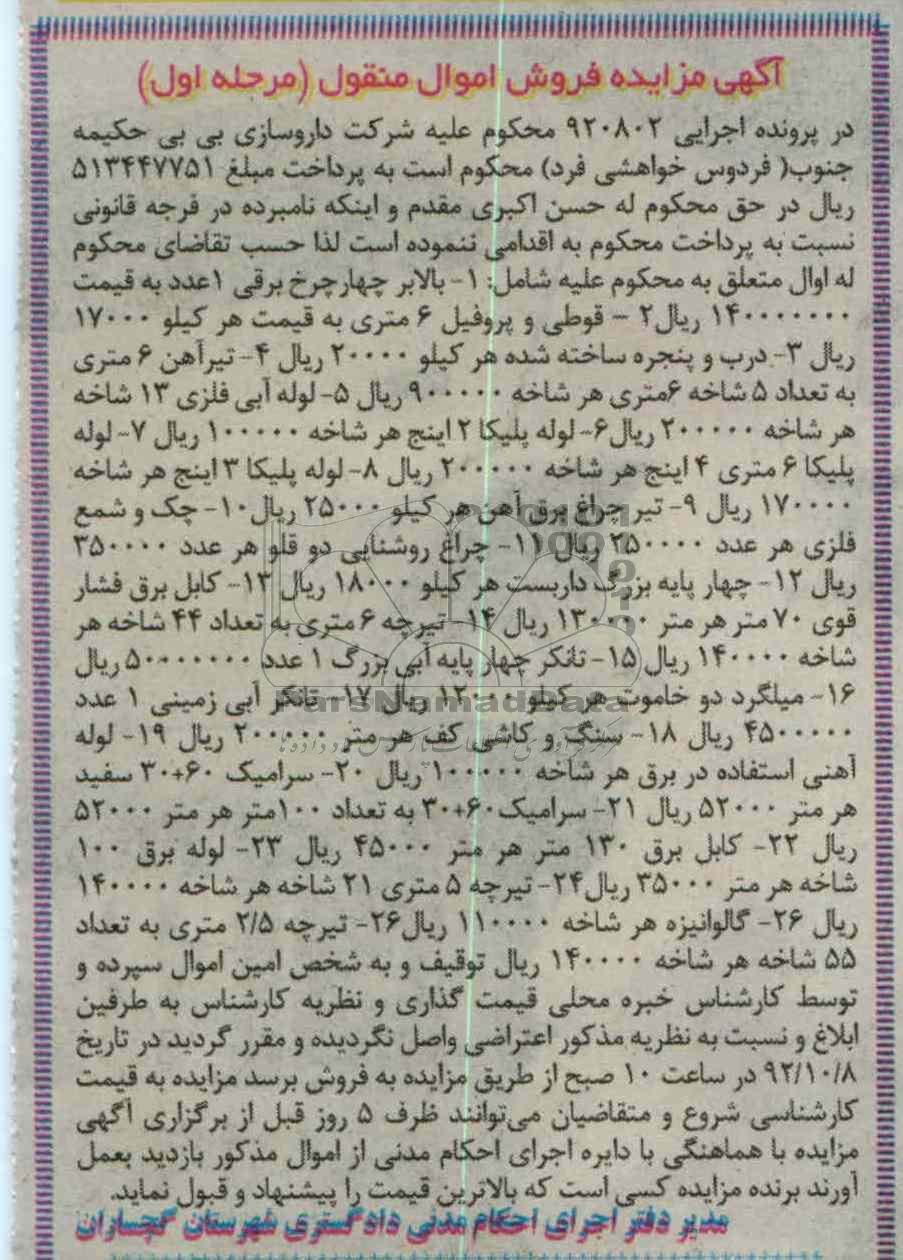 آگهی مزایده فروش اموال منقول (مرحله اول)
در پرونده اجرایی ۹۲۰۸۰۲ محکوم علیه شرکت داروسازی بی بی حکیمه
جنوب( فردوس خواهشی فرد) محکوم است به پرداخت مبلغ ۵۱۳۴۴۷۷۵۱
ریال در حق محکوم له حسن اکبری مقدم و اینکه نامبرده در فرجه قانونی
نسبت به پرداخت محکوم به اقدامی ننموده است لذا حسب تقاضای محکوم
له اوال متعلق به محکوم علیه شامل: ۱- بالابر چهارچرخ برقی ۱عدد به قیمت
۱۴۰۰۰۰۰۰۰ ریال۲ - قوطی و پروفیل ۶ متری به قیمت هر کیلو ۱۷۰۰۰
ریال ۳- درب و پنجره ساخته شده هر کیلو ۲۰۰۰۰ ریال ۴- تیرآهن ۶ متری
به تعداد ۵ شاخه ۶متری هر شاخه ۹۰۰۰۰۰ ریال ۵- لوله آبی فلزی ۱۳ شاخه
هر شاخه ۲۰۰۰۰۰ ریال۶- لوله پلیکا ۲ اینچ هر شاخه ۱۰۰۰۰۰ ریال ۷- لوله
پلیکا ۶ متری ۴ اینچ هر شاخه ۲۰۰۰۰۰ ریال ۸- لوله پلیکا ۳ اینچ هر شاخه
۱۷۰۰۰۰ ریال ۹- تیر چراغ برق آهن هر کیلو ۲۵۰۰۰ ریال۱۰- جک و شمع
فلزی هر عدد ۲۵۰۰۰۰ ریال ۱۱- چراغ روشنایی دو قلو هر عدد ۳۵۰۰۰۰
ریال ۱۲- چهار پایه بزرگ داربست هر کیلو ۱۸۰۰۰ ریال ۱۳- کابل برق فشار
قوی ۷۰ متر هر متر ۱۳۰۰۰۰ ریال ۱۴- تیرچه ۶ متری به تعداد ۴۴ شاخه هر
شاخه ۱۴۰۰۰۰ ریال ۱۵- تانکر چهار پایه آبی بزرگ ۱ عدد ۵۰۰۰۰۰۰۰ ریال
۱۶- میلگرد دو خاموت هر کیلو ۱۲۰۰۰ ریال ۱۷- تانکر آبی زمینی ۱ عدد
۴۵۰۰۰۰۰ ریال ۱۸- سنگ و کاشی کف هر متر ۲۰۰۰۰۰ ریال ۱۹- لوله
آهنی استفاده در برق هر شاخه ۱۰۰۰۰۰ ریال ۲۰- سرامیک ۶۰+۳۰ سفید
هر متر ۵۲۰۰۰ ریال ۲۱- سرامیک۶۰+۳۰ به تعداد ۱۰۰متر هر متر ۵۲۰۰۰
ریال ۲۲- کابل برق ۱۳۰ متر هر متر ۴۵۰۰۰ ریال ۲۳- لوله برق ۱۰۰
شاخه هر متر ۳۵۰۰۰ ریال۲۴- تیرچه ۵ متری ۲۱ شاخه هر شاخه ۱۴۰۰۰۰
ریال ۲۶- گالوانیزه هر شاخه ۱۱۰۰۰۰ ریال۲۶- تیرچه ۲/۵ متری به تعداد
۵۵ شاخه هر شاخه ۱۴۰۰۰۰ ریال توقیف و به شخص امین اموال سپرده و
توسط کارشناس خبره محلی قیمت گذاری و نظریه کارشناس به طرفین
ابلاغ و نسبت به نظریه مذکور اعتراضی واصل نگردیده و مقرر گردید در تاریخ
۹۲/۱۰/۸ در ساعت ۱۰ صبح از طریق مزایده به فروش برسد مزایده به قیمت
کارشناسی شروع و متقاضیان می‌توانند ظرف ۵ روز قبل از برگزاری آگهی
مزایده با هماهنگی با دایره اجرای احکام مدنی از اموال مذکور بازدید بعمل
آورند برنده مزایده کسی است که بالاترین قیمت را پیشنهاد و قبول نماید.
مدیر دفتر اجرای احکام مدنی دادگستری شهرستان گچساران